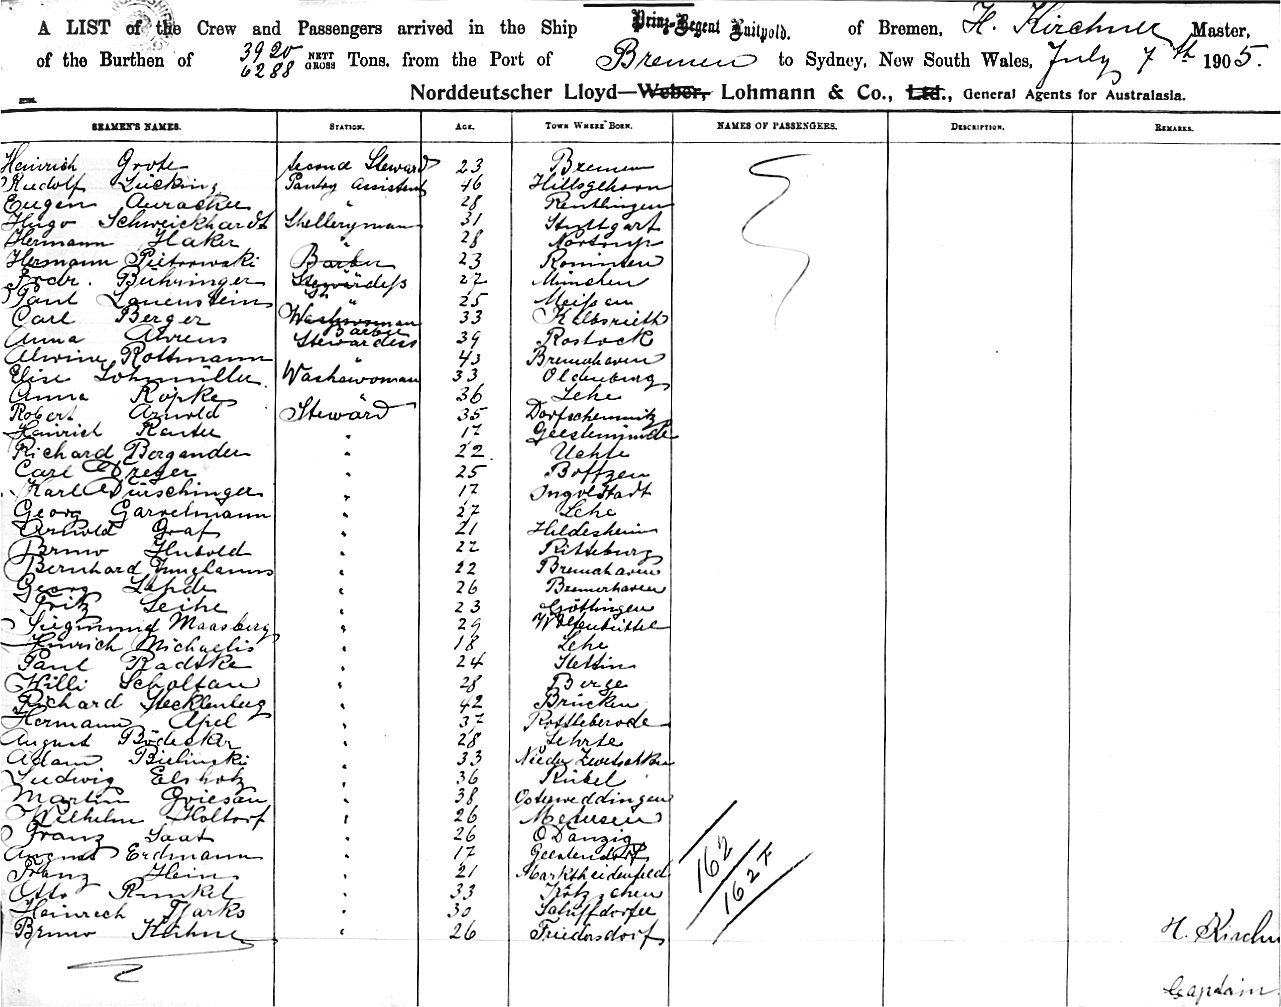 A LIST of the Crew and Passengers arrived in the Ship Prinz-Regent Luitpold. of Bremen, H. Kirchner Master,
of the Burthen of 3920 NETT 6288 GROSS Tons, from the Port of Bremen to Sydney, New South Wales, July 7th 1905.
Norddeutscher Lloyd—Weber, Lohmann & Co., Ltd., General Agents for Australasia.
SEAMEN'S NAMES. STATION. AGE. TOWN WHERE BORN. NAMES OF PASSENGERS. DESCRIPTION. REMARKS.
Heinrich Grote second Steward 23 Bremen
Rudolf Lücking Pantry Assistent 46
Eugen " 28 Reutlingen
Hugo Schweickhardt 31 Stuttgart
Hermann Haker " 28 Nortrup
Hermann Pietrowski Barber 23 Rominten
Fredr. Bühringer 27 München
Paul Lauenstein " 25 Meissen
Carl Berger Washwoman Barber 33
Anna Ahrens Stewardess 39 Rostock
Alwine Rottmann " 43 Bremahaven
Elise Lohmüller Washewoman 33 Oldenburg
Anna Röpke 36 Lehe
Robert Arnold Steward 35 Dorfschemnitz
Heinrich " 17 Geestemünde
Richard Bergander " 22 Uchte
Carl Dreyer " 25 Boffzen
Karl Dürschinger " 17 Ingolstadt
Georg Garrelmann " 27 Lehe
Arnold Graf " 21 Hildesheim
Bruno " 22
Bernhard Junghanns " 22 Bremahaven
Georg " 26 Bremerhaven
Fritz " 23 Göttingen
Siegmund Maasberg " 29 Wolfenbüttel
Hinrich Michaelis " 18 Lehe
Paul Radtke " 24 Stettin
Willi Scholtan " 28 Berge
Richard Stecklenberg " 42 Brücken
Hermann Apel " 37 Rottleberode
August Bödecker " 28 Lehrte
Adam Bielinski " 33
Ludwig Elsholz " 36
Martin Griesau " 38 Osterweddingen
Wilhelm Holtorf " 26
Franz Saat " 26 Danzig
August Erdmann " 17 Geestendorf
Franz Hein " 21 Marktheidenfeld
Otto Runkel " 33
Heinrech Tjarks " 30 Schiffdorfer
Bruno Kühne " 26 Friedersdorf
162
162 F
H. Kirchn
Captain.